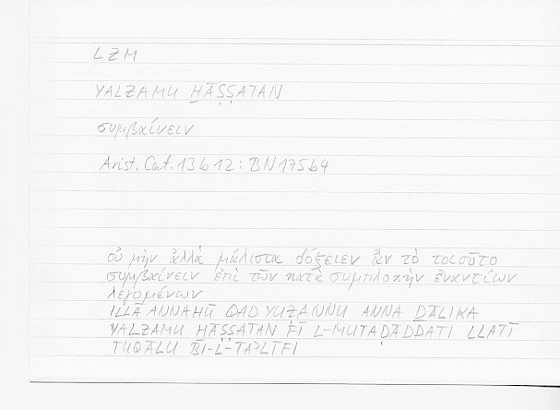 LZM
YALZAMU ḪĀṢṢATAN
συμβαίνειν
Arist. Cat. 13b12: BN175b4
οὐ μὴν ἀλλὰ μάλιστα δόξειεν ἂν τὸ τοιοῦτο
συμβαίνειν ἐπὶ τῶν κατὰ συμπλοκὴν ἐναντίων
λεγομένων
ILLĀ ANNAHŪ QAD YUẒANNU ANNA ḎĀLIKA
YALZAMU ḪĀṢṢATAN FĪ L-MUTAḌĀDDATI LLATĪ
TUQĀLU BI-L-TAʾLĪFI